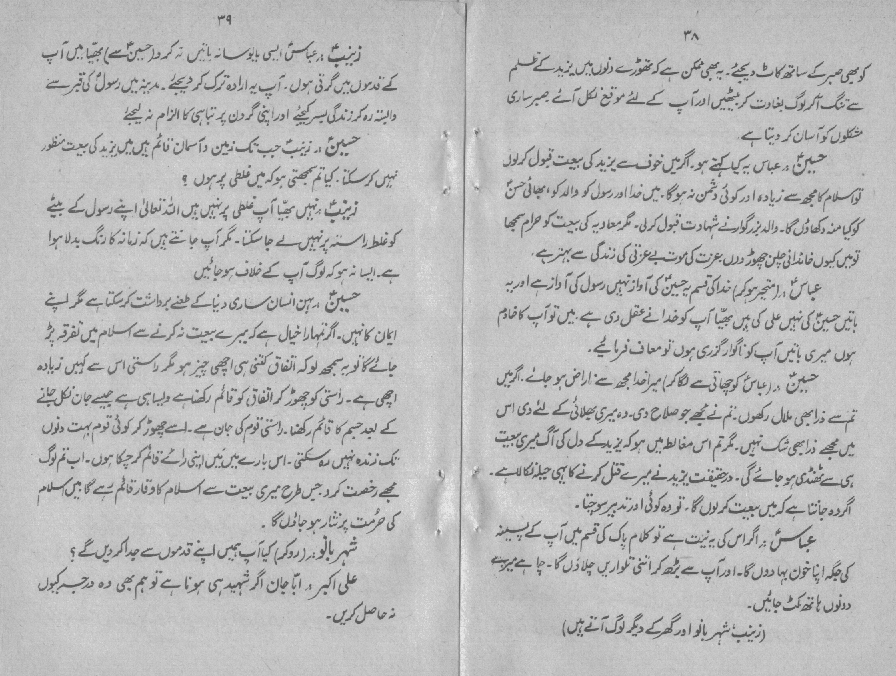 ۳۸
کو بھی صبر کے ساتھ کاٹ دیجئے۔ یہ بھی ممکن ہے کہ تھوڑے دنوں میں یزید کے ظلم
سے تنگ آکر لوگ بغاوت کر بیٹھیں اور آپ کے لئے موقع نکل آئے صبر ساری
مشکلوں کو آسان کر دیتا ہے
حسینؑ :۔ عباس یہ کیا کہتے ہو۔ اگر میں خوف سے یزید کی بیعت قبول کر لوں
تو اسلام کا مجھ سے زیادہ اور کوئی دشمن نہ ہوگا۔ میں خدا اور رسول کو والد کو بھائی حسنؑ
کو کیا منہ دکھاؤں گا۔ والد بزرگوار نے شہادت قبول کرلی۔ مگر معاویہ کی بیعت کو حرام سمجھا
تو میں کیوں خاندانی چلن چھوڑ دوں عزت کی موت بے عزتی کی زندگی سے بہتر ہے۔
عباسؑ :۔ (متحیر ہو کر) خدا کی قسم یہ حسینؑ کی آواز نہیں رسول کی آواز ہے اور یہ
باتیں حسینؑ کی نہیں علی کی ہیں بھیّا آپ کو خدا نے عقل دی ہے۔ میں تو آپ کا خادم
ہوں میری باتیں آپ کو ناگوار گزری ہوں تو معاف فرمائیے۔
حسینؑ :۔ (عباسؑ کو چھاتی سے لگا کر) میرا خدا مجھ سے ناراض ہو جائے۔ اگر میں
تم سے ذرا بھی ملال رکھوں۔ تم نے مجھے جو صلاح دی۔ وہ میری بھلائی کے لئے دی اس
میں مجھے ذرا بھی شک نہیں۔ مگر تم اس مغالطہ میں ہو کہ یزید کے دل کی آگ میری بیعت
ہی سے ٹھنڈی ہو جائے گی۔ درحقیقت یزید نے میرے قتل کرنے کا یہی حیلہ نکالا ہے۔
اگر وہ جانتا ہے کہ میں بیعت کر لوں گا۔ تو وہ کوئی اور تدبیر سوچتا۔
عباسؑ :۔ اگر اس کی یہ نیت ہے تو کلام پاک کی قسم میں آپ کے پسینہ
کی جگہ اپنا خون بہا دوں گا۔ اور آپ سے بڑھ کر اتنی تلواریں چلاؤں گا۔ چاہے میرے
دونوں ہاتھ کٹ جائیں۔
(زینبؑ شہر بانو اور گھر کے دیگر لوگ آتے ہیں)
۳۹
زینبؑ :۔ عباسؑ ایسی مایوسانہ باتیں نہ کرو (حسینؑ سے) بھیّا میں آپ
کے قدموں میں گرتی ہوں۔ آپ یہ ارادہ ترک کر دیجئے۔ مدینہ میں رسولؐ کی قبر سے
وابستہ رہ کر زندگی بسر کیجئے اور اپنی گردن پر تباہی کا الزام نہ لیجئے
حسینؑ :۔ زینبؑ جب تک زمین و آسمان قائم ہیں میں یزید کی بیعت منظور
نہیں کر سکتا۔ کیا تم سمجھتی ہو کہ میں غلطی پر ہوں ؟
زینبؑ :۔ نہیں بھیّا آپ غلطی پر نہیں ہیں اللہ تعالیٰ اپنے رسول کے بیٹے
کو غلط راستہ پر نہیں لے جا سکتا۔ مگر آپ جانتے ہیں کہ زمانہ کا رنگ بدلا ہوا
ہے۔ ایسا نہ ہو کہ لوگ آپ کے خلاف ہو جائیں
حسینؑ :۔ بہن انسان ساری دنیا کے طعنے برداشت کر سکتا ہے مگر اپنے
ایمان کا نہیں۔ اگر تمہارا خیال ہے کہ میرے بیعت نہ کرنے سے اسلام میں تفرقہ پڑ
جائے گا تو یہ سمجھ لو کہ اتفاق کتنی ہی اچھی چیز ہو مگر راستی اس سے کہیں زیادہ
اچھی ہے۔ راستی کو چھوڑ کر اتفاق کو قائم رکھنا ہے ویسا ہی ہے جیسے جان نکل جانے
کے بعد جسم کا قائم رکھنا۔ راستی قوم کی جان ہے۔ اسے چھوڑ کر کوئی قوم بہت دنوں
تک زندہ نہیں رہ سکتی۔ اس بارے میں میں اپنی رائے قائم کر چکا ہوں۔ اب تم لوگ
مجھے رخصت کر دو جس طرح میری بیعت سے اسلام کا وقار قائم رہے گا میں اسلام
کی حرمت پر نثار ہو جاؤں گا۔
شہر بانو :۔ (رو کر) کیا آپ ہمیں اپنے قدموں سے جدا کر دیں گے ؟
علی اکبر :۔ ابّا جان اگر شہید ہی ہونا ہے تو ہم بھی وہ درجہ کیوں
نہ حاصل کریں۔